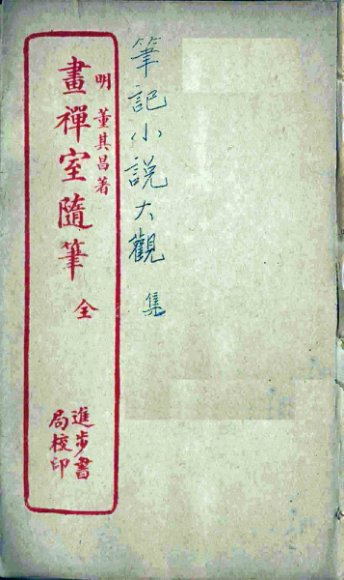 筆記小説大觀 集
明 董其昌著
畫禪室隨筆 全
進步書
局校印